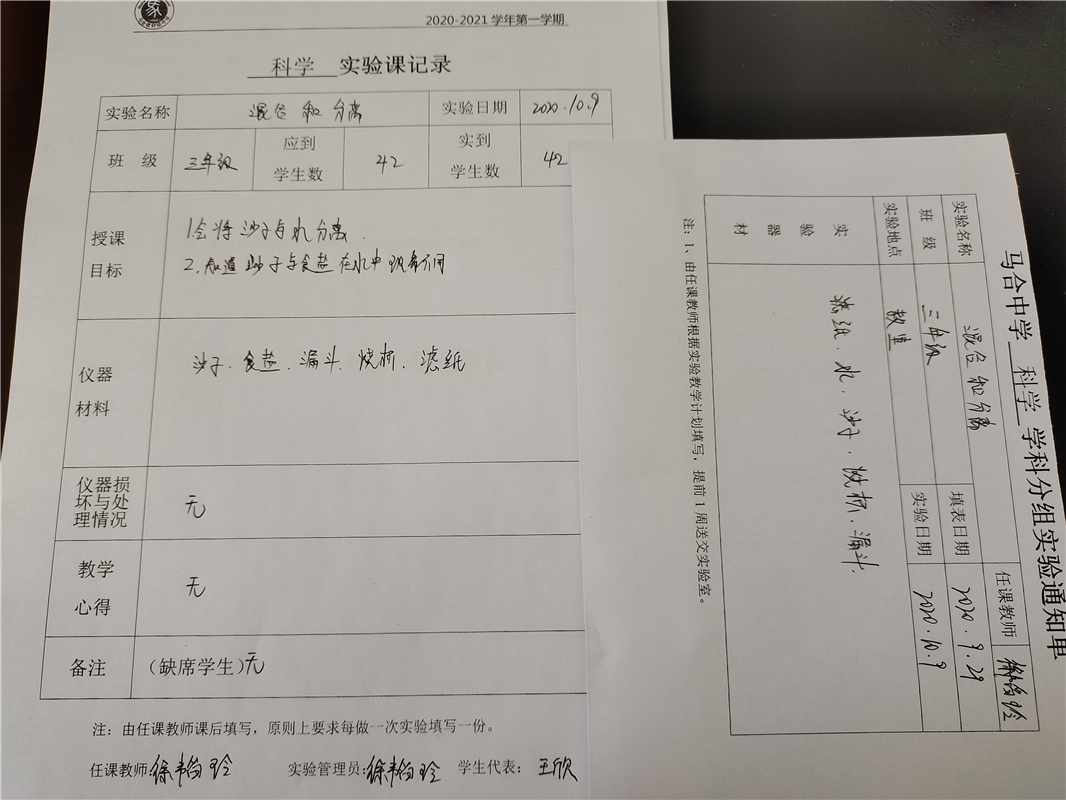 2020-2021 学年第一学期
科学 实验课记录
实验名称 混合和分离 实验日期 2020.10.9
班 级 三年级 应到学生数 42 实到学生数 42
授课目标
1.会将沙子与水分离.
2.知道沙子与食盐在水中现象不同
仪器材料
沙子、食盐、漏斗、烧杯、滤纸
仪器损坏与处理情况 无
教学心得 无
备注 （缺席学生）无
注：由任课教师课后填写，原则上要求每做一次实验填写一份。
任课教师: 实验管理员: 学生代表: 王欣
马合中学 科学 学科分组实验通知单
任课教师
实验名称 混合和分离 填表日期 2020.9.29
班 级 三年级 实验日期 2020.10.9
实验地点 教室
实验器材
滤纸、水、沙子、烧杯、漏斗.
注：1、由任课教师根据实验教学计划填写，提前 1 周送交实验室。